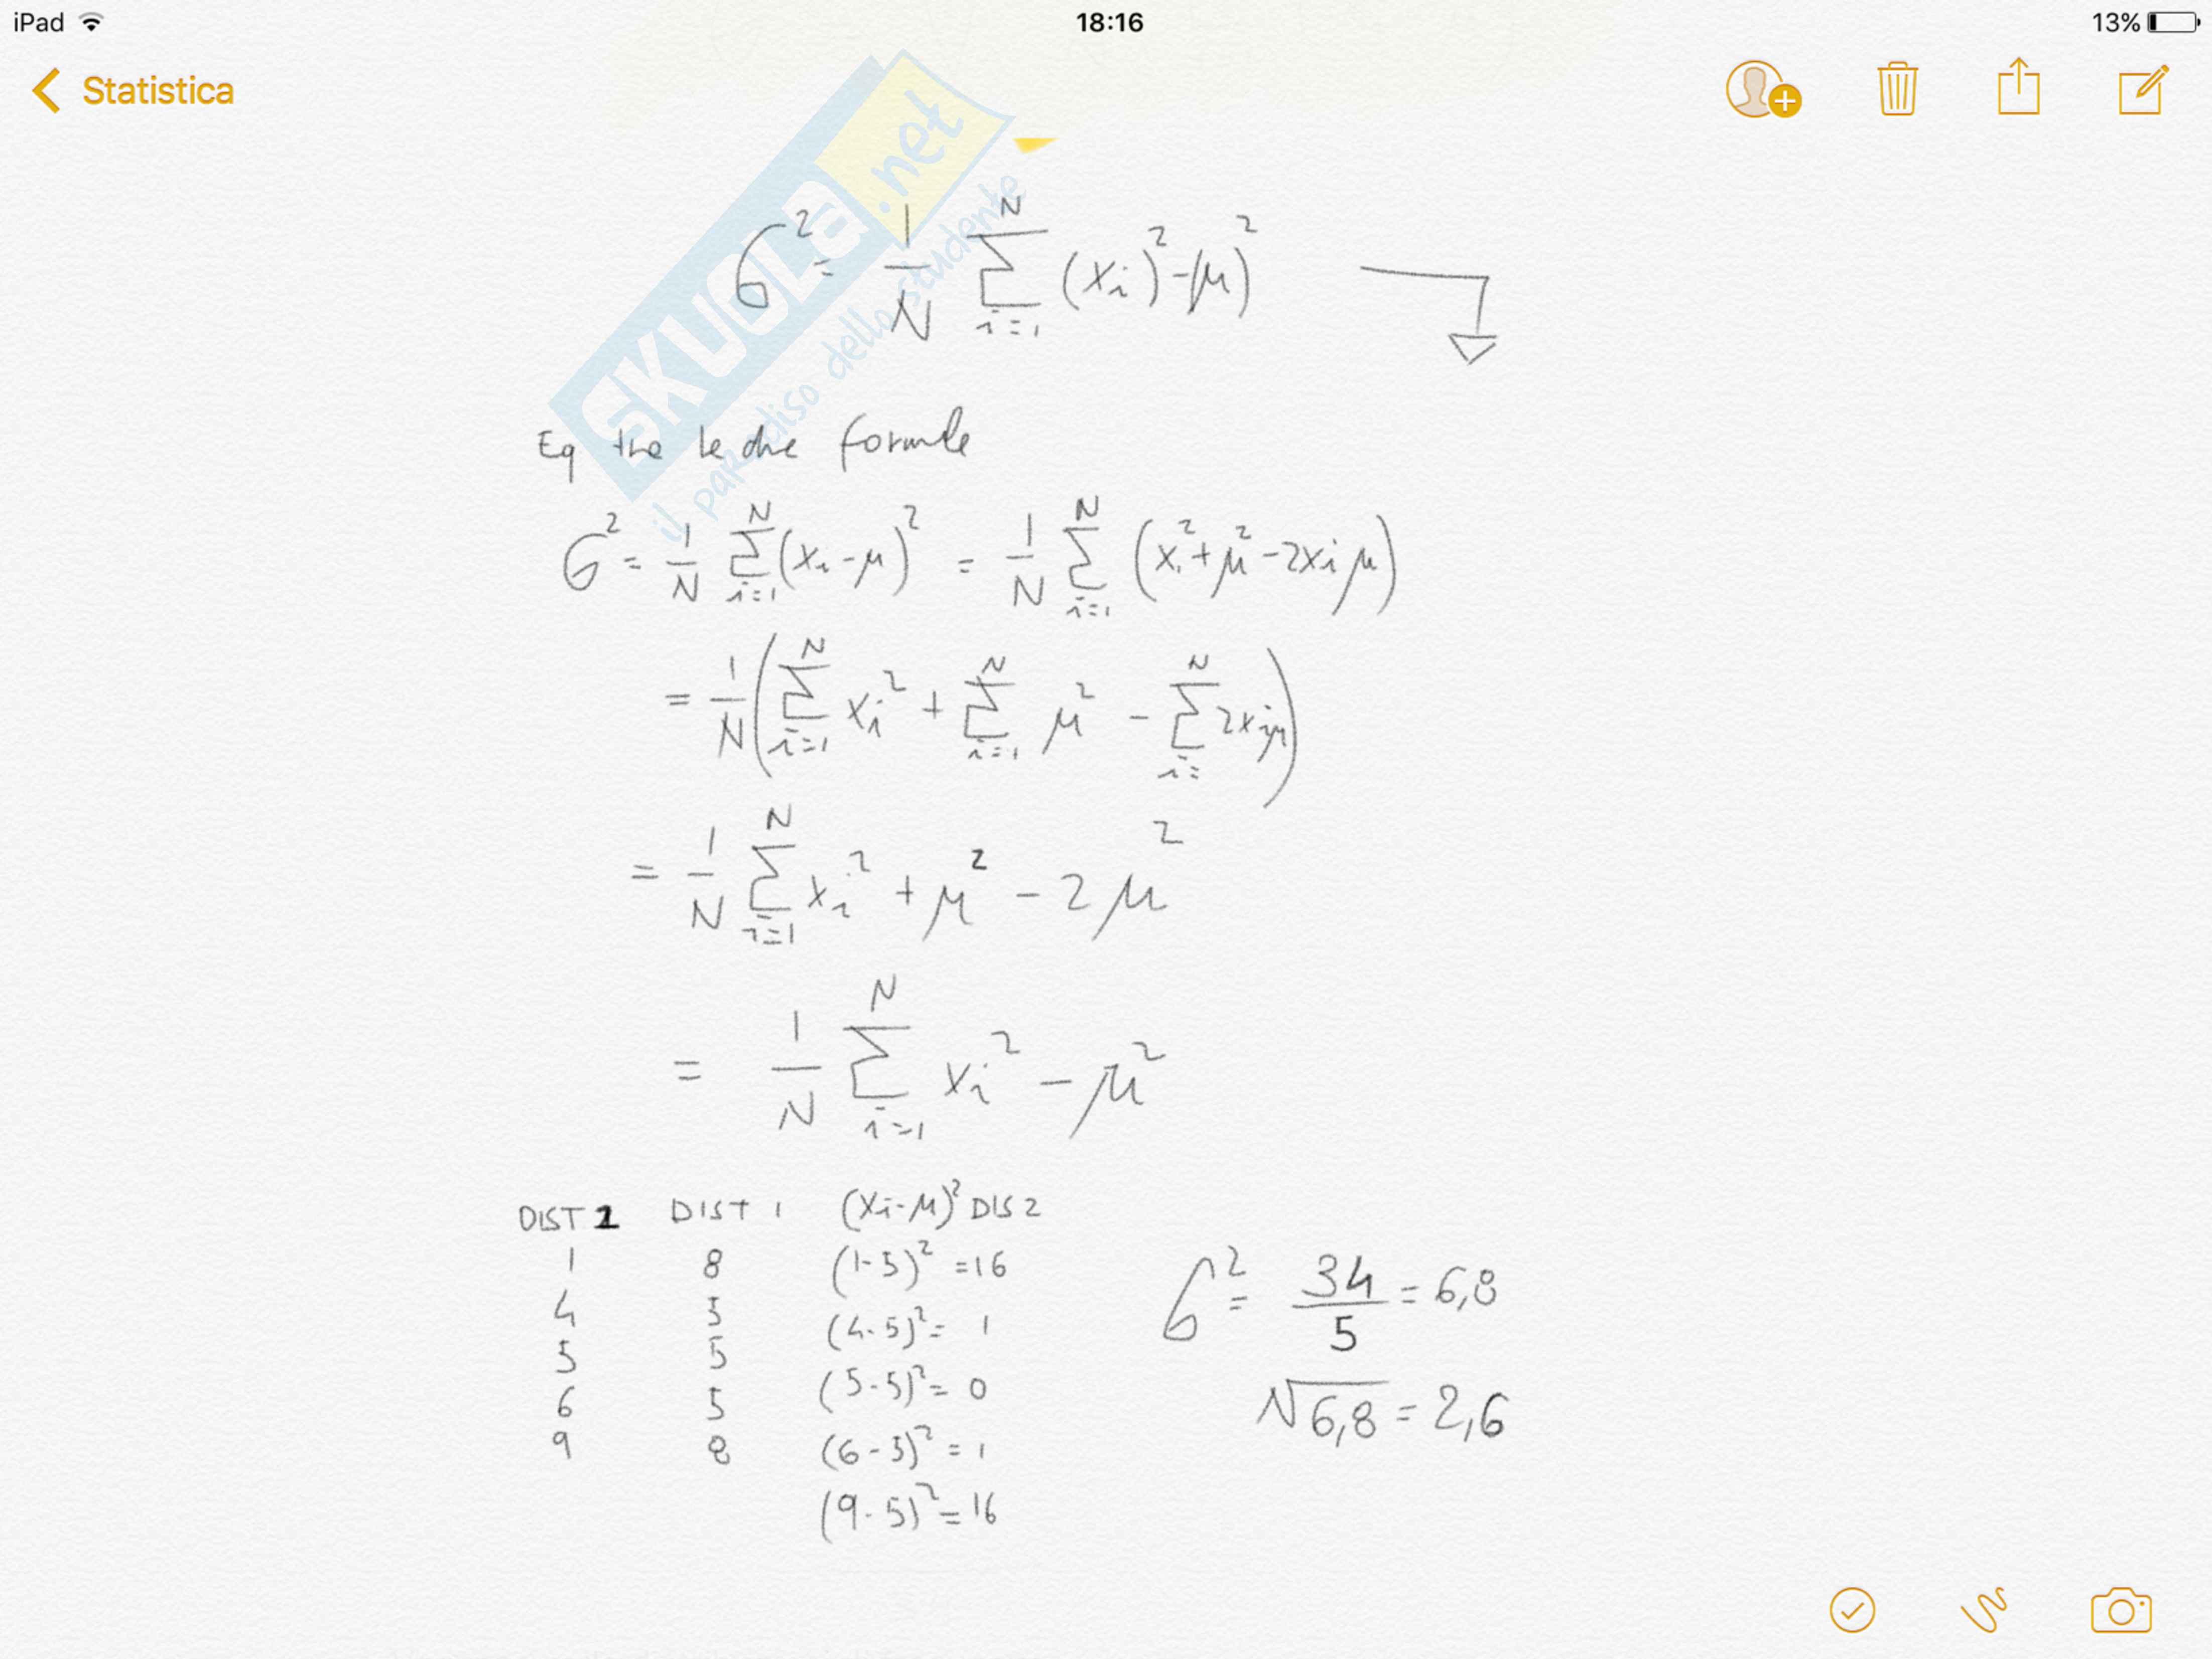 iPad 18:16 13%
Statistica
SKUOLA.net
il paradiso dello studente
σ² = 1/N N∑i=1 (xi)² - μ)²
Eq tra le due formule
σ² = 1/N N∑i=1 (xi - μ)² = 1/N N∑i=1 (xi² + μ² - 2xi μ)
= 1/N (N∑i=1 xi² + N∑i=1 μ² - N∑i= 2xiμ)
= 1/N N∑i=1 xi² + μ² - 2μ²
= 1/N N∑i=1 xi² - μ²
DIST 2 DIST 1 (Xi-μ)² DIS 2
1 8 (1-5)² = 16
4 5 (4-5)² = 1
5 5 (5-5)² = 0
6 5 (6-5)² = 1
9 8 (9-5)² = 16
σ² = 34/5 = 6,8
√6,8 = 2,6